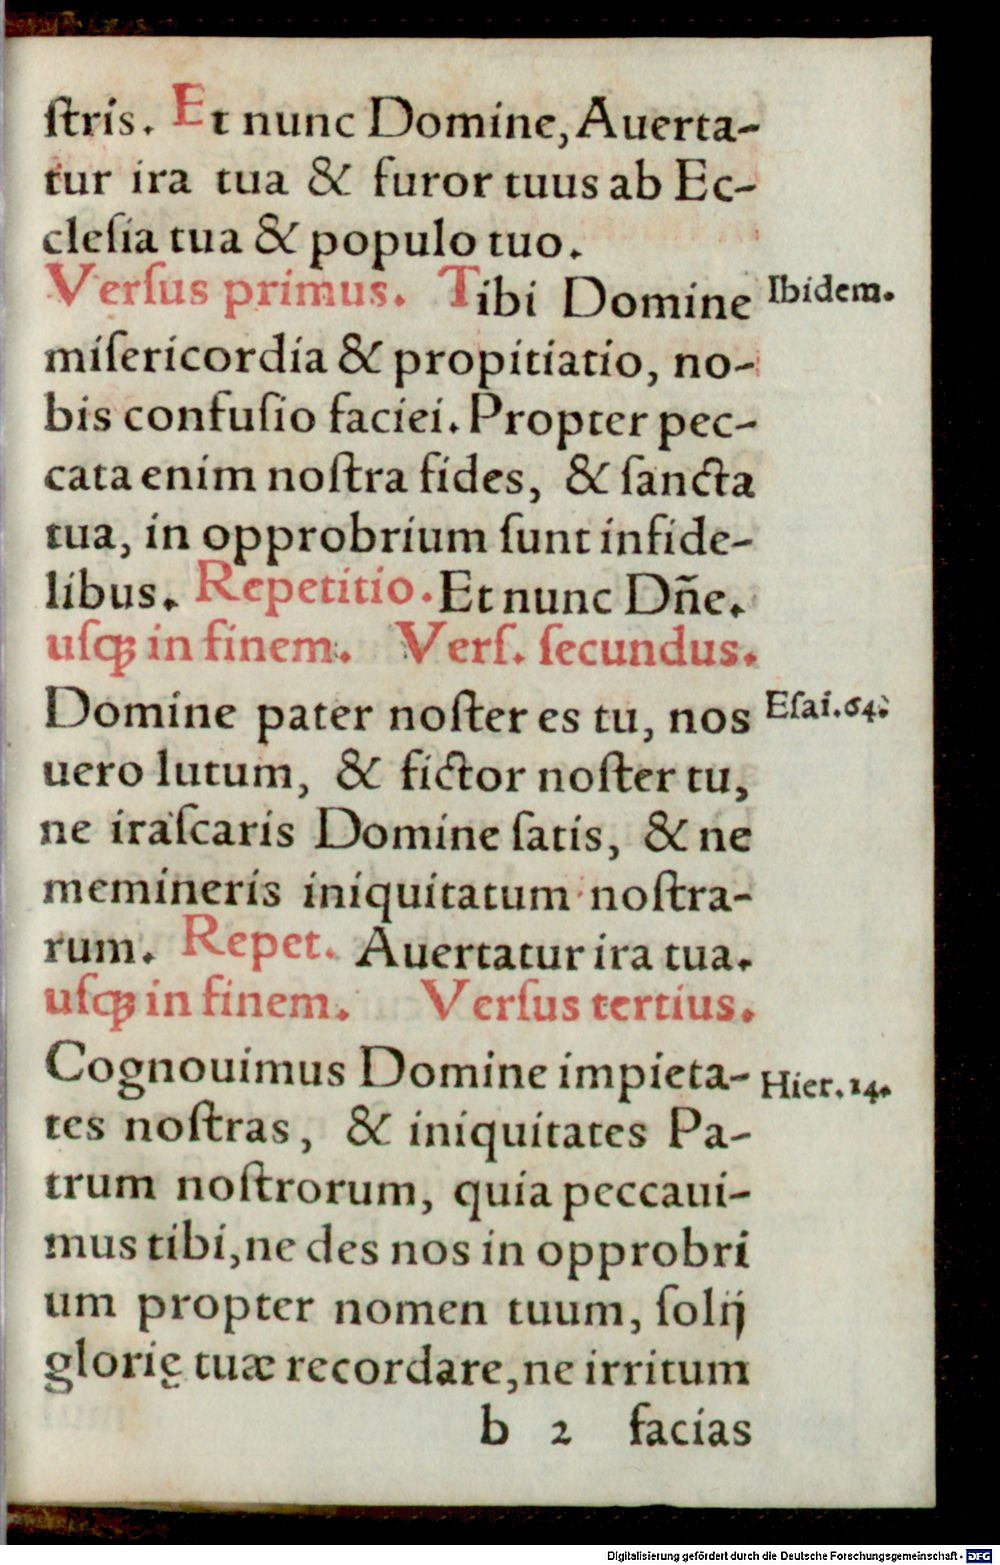 ſtris. Et nunc Domine, Auerta-
tur ira tua & furor tuus ab Ec-
cleſia tua & populo tuo.
Verſus primus. Tibi Domine
Ibidem.
miſericordia & propitiatio, no-
bis confuſio faciei. Propter pec-
cata enim noſtra fides, & ſancta
tua, in opprobrium ſunt infide-
libus. Repetitio. Et nunc Dñe.
uſqꝫ in finem. Verſ. ſecundus.
Domine pater noſter es tu, nos
Eſai. 64.
uero lutum, & fictor noſter tu,
ne iraſcaris Domine ſatis, & ne
memineris iniquitatum noſtra-
rum. Repet. Auertatur ira tua.
uſqꝫ in finem. Verſus tertius.
Cognouimus Domine impieta-
Hier. 14.
tes noſtras, & iniquitates Pa-
trum noſtrorum, quia peccaui-
mus tibi, ne des nos in opprobri
um propter nomen tuum, ſolij
glorię tuæ recordare, ne irritum
b 2 facias
Digitalisierung gefördert durch die Deutsche Forschungsgemeinschaft - DFG